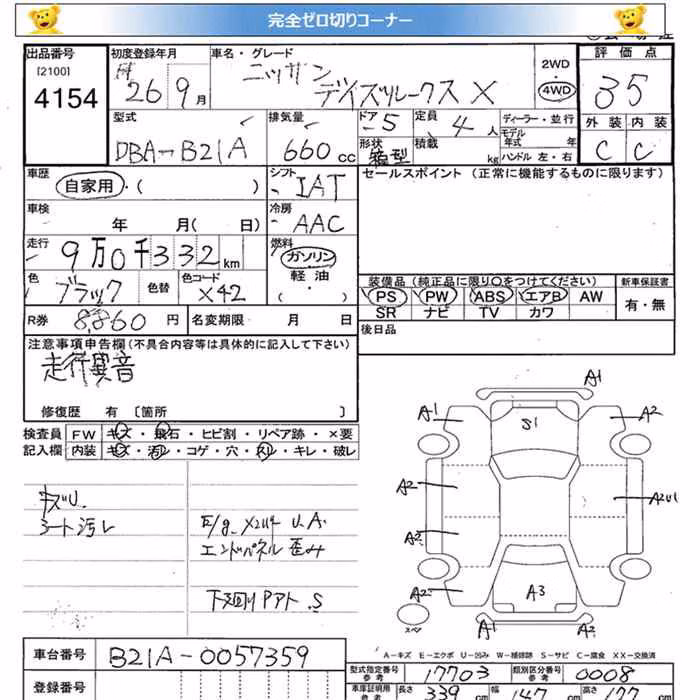 完全ゼロ切りコーナー
出品番号
[2100]
4154
初度登録年月
26 9月
車名・グレード
ニッサン
デイズルークス X
2WD
・
4WD
評価点
35
外装 内装
C C
型式
DBA-B21A
排気量
660 cc
ドア 5
定員 4人
形状 箱型
積載 kg
ディーラー・並行
モデル年式 年
ハンドル 左・右
車歴
自家用・( )
シフト IAT
セールスポイント (正常に機能するものに限ります)
車検
年 月( 日)
冷房 AAC
走行
9万0千332km
燃料
ガソリン
軽・油
・( )
色
ブラック
色替
色コード
X42
装備品 (純正品に限り○をつけてください)
PS PW ABS エアB AW
SR ナビ TV カワ
新車保証書
有・無
R券 8,860円
名変期限 月 日
後日品
注意事項申告欄(不具合内容等は具体的に記入して下さい)
走行異音
修復歴 有 〔箇所 〕
検査員 FW キズ・飛石・ヒビ割・リペア跡・×要
記入欄 内装 キズ・汚レ・コゲ・穴・スレ・キレ・破レ
キズU.
シート汚レ
エンドパネル 歪み
下廻りPアト .S
A1
A1 S1 A2
A2 A2U1
A2
A2 A3 A2
スペア A1 A2
A-キズ E-エクボ U-凹み W-補修跡 S-サビ C-腐食 XX-交換済
車台番号 B21A-0057359
登録番号
型式指定番号 17703
類別区分番号 0008
車庫証明用参考
長さ 339 cm
幅 147 cm
高さ 177 cm